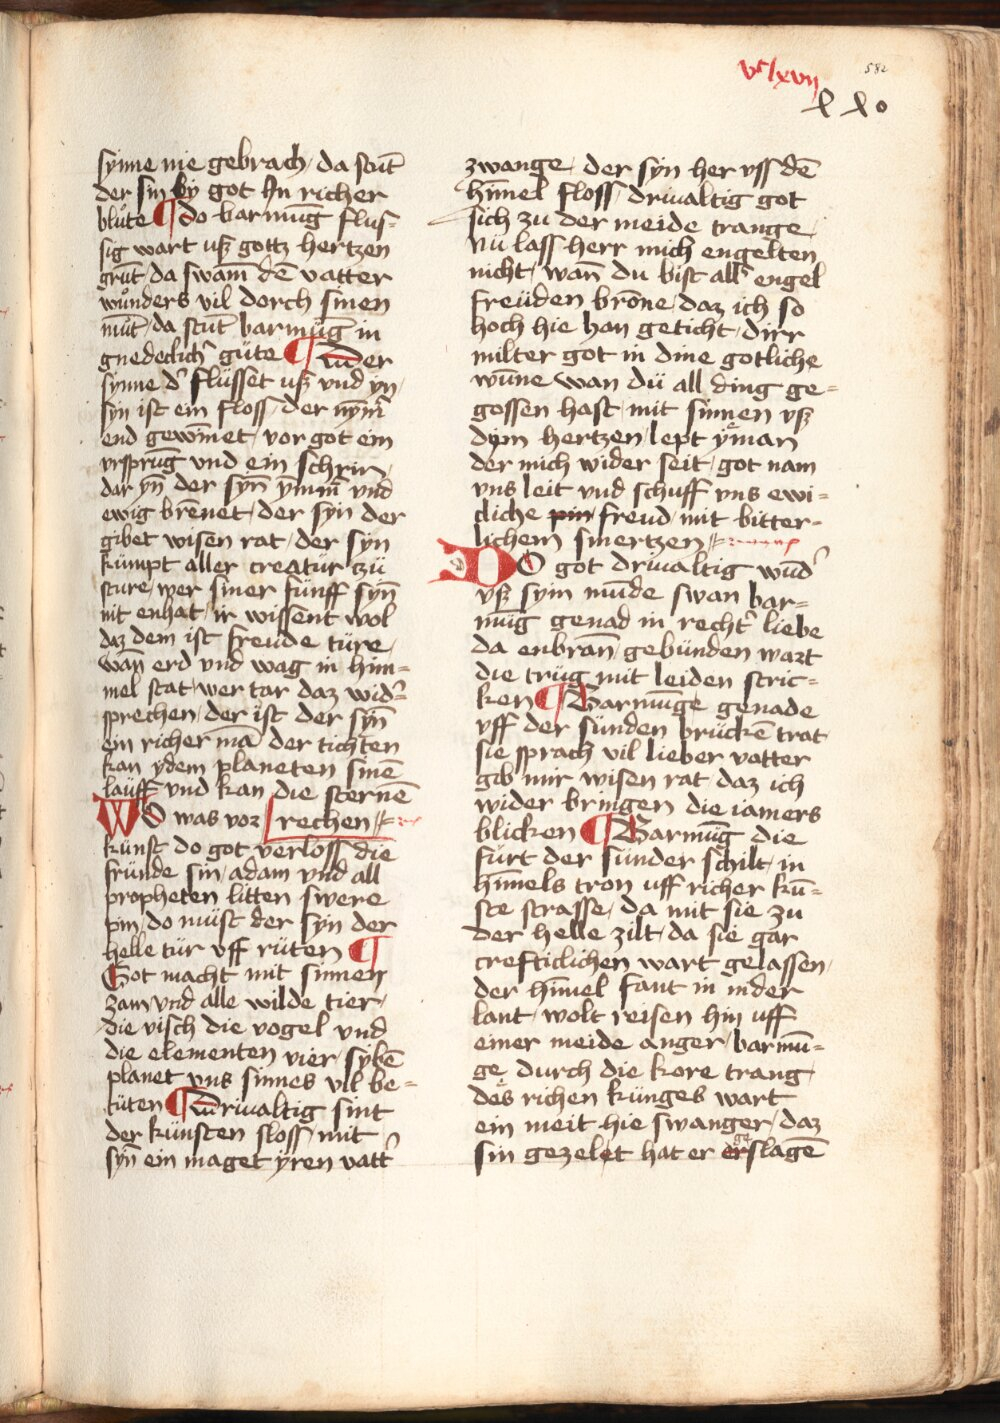 vclxvij
582
synne nie gebrach / da stūt
der sin by got In richer
blůte ¶ do barmūg flüs-
sig wart uß gottz hertzen
grūt / da swam̄ dē vatter
wůnders vil dorch sinen
mūt / da stūt barmūg in
gnedeclichͬ güte ¶ Der
synne dͬ flüsset uß vnd yn /
syn ist ein floss / der nym̄ͬ
end gewin̄et / vor got ein
vrsprūg vnd ein schrin /
dar yn̄ der syn̄ ym̄mͬ vnd
ewig brēnet / der syn der
gibet wisen rat / der syn
kümpt aller creatür zü
sture / wer siner fünff syn̄
nit enhat / ir wissent wol
daz dem ist freude türe /
wan̄ erd vnd wag in him-
mel stat / wer tar daz widͬ
sprechen / der ist der syn̄
ein richer mā der tichten
kan ydem planeten sinē
lauff vnd kan die sternē
WO was vor rechen
künst do got verloss die
fründe sin / adam vnd all
propheten litten swere
pin / do müst der syn der
helle tür vff rüten ¶
Got macht mit sinnen
zam vnd alle wilde tier /
die visch die vogel vnd
die elementen vier / sybē
planet vns sinnes vil be-
tüten ¶ Driualtig sint
der künsten sloss / mit
syn̄ ein maget yren vattͬ
zwange / der syn her vss dē
him̄el floss / driualtig got
sich zu der meide trange /
nu lass herr mich engelten
nicht / wan̄ du bist allͬ engel
freüden krōne / daz ich so
hoch hie han geticht / dirr
milter got in dine gotliche
wūne wan dü all ding ge-
gossen hast / mit sinnen vß
dym hertzen / lept yeman
der mich wider seit / got nam
vns leit vnd schuff vns ewi-
cliche pin freud / mit bitter-
lichem smertzen
DO got driualtig wūdͬ
vß sym mūde swan bar-
mūg genad in rechtͬ liebe
da enbran̄ / gebünden wart
die trüg mit leiden stric-
ken ¶ Barmūge genade
vff der sünden brückē trat
sie sprach vil lieber vatter
gib mir wisen rat daz ich
wider bringen die iamers
blicken ¶ Barmūg die
fürt der sünder schilt / in
him̄els tron uff richer kū-
ste strasse / da mit sie zu
der helle zilt / da sie gar
crefticlichen wart gelassen /
der him̄el fant in in der
lant / wolt reisen hin uff
einer meide anger / barmū-
ge durch die kore trang /
des richen künges wart
ein meit hie swanger / daz
sin gezelet hat er erslagē